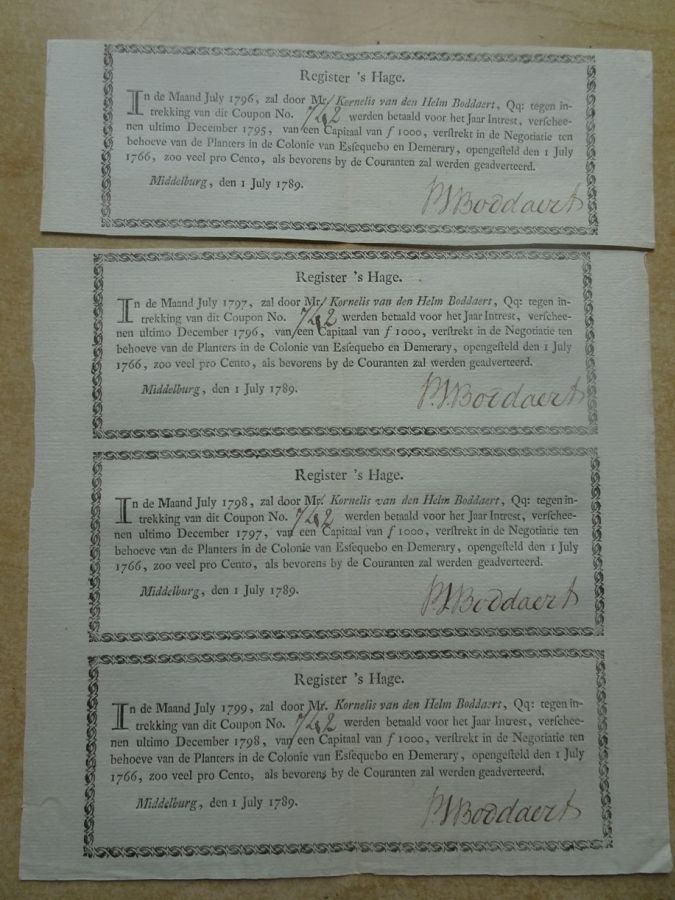 Register 's Hage.
In de Maand July 1796, zal door Mr. Kornelis van den Helm Boddaert, Qq: tegen in-
trekking van dit Coupon No. 742 werden betaald voor het Jaar Intrest, verschee-
nen ultimo December 1795, van een Capitaal van ƒ 1000, verstrekt in de Negotiatie ten
behoeve van de Planters in de Colonie van Essequebo en Demerary, opengesteld den 1 July
1766, zoo veel pro Cento, als bevorens by de Couranten zal werden geadverteerd.
Middelburg, den 1 July 1789.
Boddaert
Register 's Hage.
In de Maand July 1797, zal door Mr. Kornelis van den Helm Boddaert, Qq: tegen in-
trekking van dit Coupon No. 742 werden betaald voor het Jaar Intrest, verschee-
nen ultimo December 1796, van een Capitaal van ƒ 1000, verstrekt in de Negotiatie ten
behoeve van de Planters in de Colonie van Essequebo en Demerary, opengesteld den 1 July
1766, zoo veel pro Cento, als bevorens by de Couranten zal werden geadverteerd.
Middelburg, den 1 July 1789.
Boddaert
Register 's Hage.
In de Maand July 1798, zal door Mr. Kornelis van den Helm Boddaert, Qq: tegen in-
trekking van dit Coupon No. 742 werden betaald voor het Jaar Intrest, verschee-
nen ultimo December 1797, van een Capitaal van ƒ 1000, verstrekt in de Negotiatie ten
behoeve van de Planters in de Colonie van Essequebo en Demerary, opengesteld den 1 July
1766, zoo veel pro Cento, als bevorens by de Couranten zal werden geadverteerd.
Middelburg, den 1 July 1789.
Boddaert
Register 's Hage.
In de Maand July 1799, zal door Mr. Kornelis van den Helm Boddaert, Qq: tegen in-
trekking van dit Coupon No. 742 werden betaald voor het Jaar Intrest, verschee-
nen ultimo December 1798, van een Capitaal van ƒ 1000, verstrekt in de Negotiatie ten
behoeve van de Planters in de Colonie van Essequebo en Demerary, opengesteld den 1 July
1766, zoo veel pro Cento, als bevorens by de Couranten zal werden geadverteerd.
Middelburg, den 1 July 1789.
Boddaert